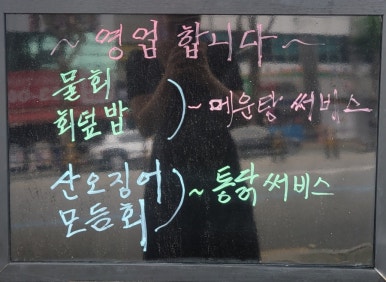 ~ 영업 합니다 ~
물회
회덮밥
~ 메운탕 써비스
산오징어
모듬회
~ 통닭 써비스